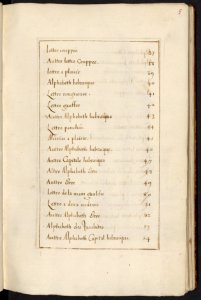 5
Lettre couppee 37
Aultre lettre Couppee 38
Lettre a plaisir 39
Alphabeth hebraique 40
Lettre 41
Lettre 42
Aultre Alphabeth hebraique 43
Lettre 44
a plaisir
Aultre Alphabeth hebraique
Aultre Capitale hebraique 47
Aultre Alphabeth Grec 48
Aultre Grec 49
Lettre de la main gauche 50
Lettre a deux 51
Aultre Alphabeth Grec 52
Alphabeth des 53
Aultre Alphabeth Capital hebraique 54